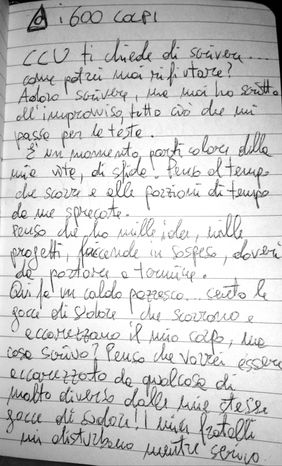 i 600 COLPI
CCU ti chiede di scrivere...
come potrei mai rifiutare?
Adoro scrivere, ma mai ho scritto
all'improvviso, tutto ciò che mi
passa per la testa.
È un momento particolare della
mia vita, di sfida. Penso al tempo
che scorre e alle porzioni di tempo
da me sprecate.
Penso che ho mille idee, mille
progetti, faccende in sospeso, doveri
da portare a termine.
Qui fa un caldo pazzesco... sento le
gocce di sudore che scorrono e
accarezzano il mio corpo, ma
cosa scrivo? Penso che vorrei essere
accarezzata da qualcosa di
molto diverso dalle mie stesse
gocce di sudore! I miei fratelli
mi disturbano mentre scrivo